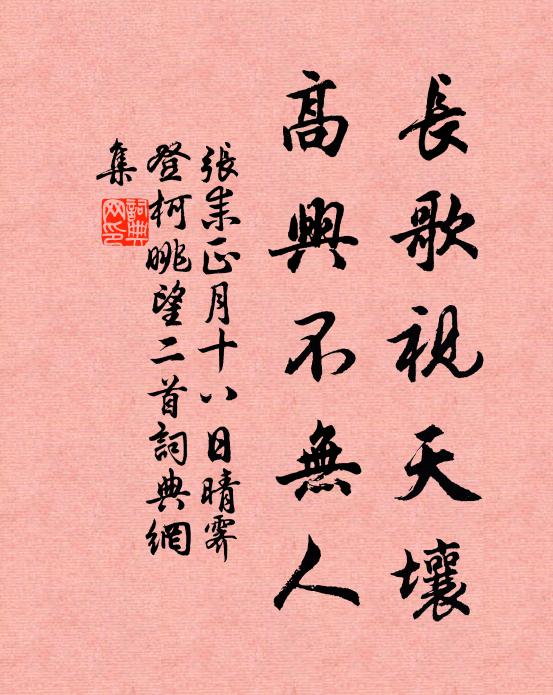 長歌視天壤
高興不無人
張耒正月十八日晴霽
登柯眺望二首詞典網
集
詞典
网印